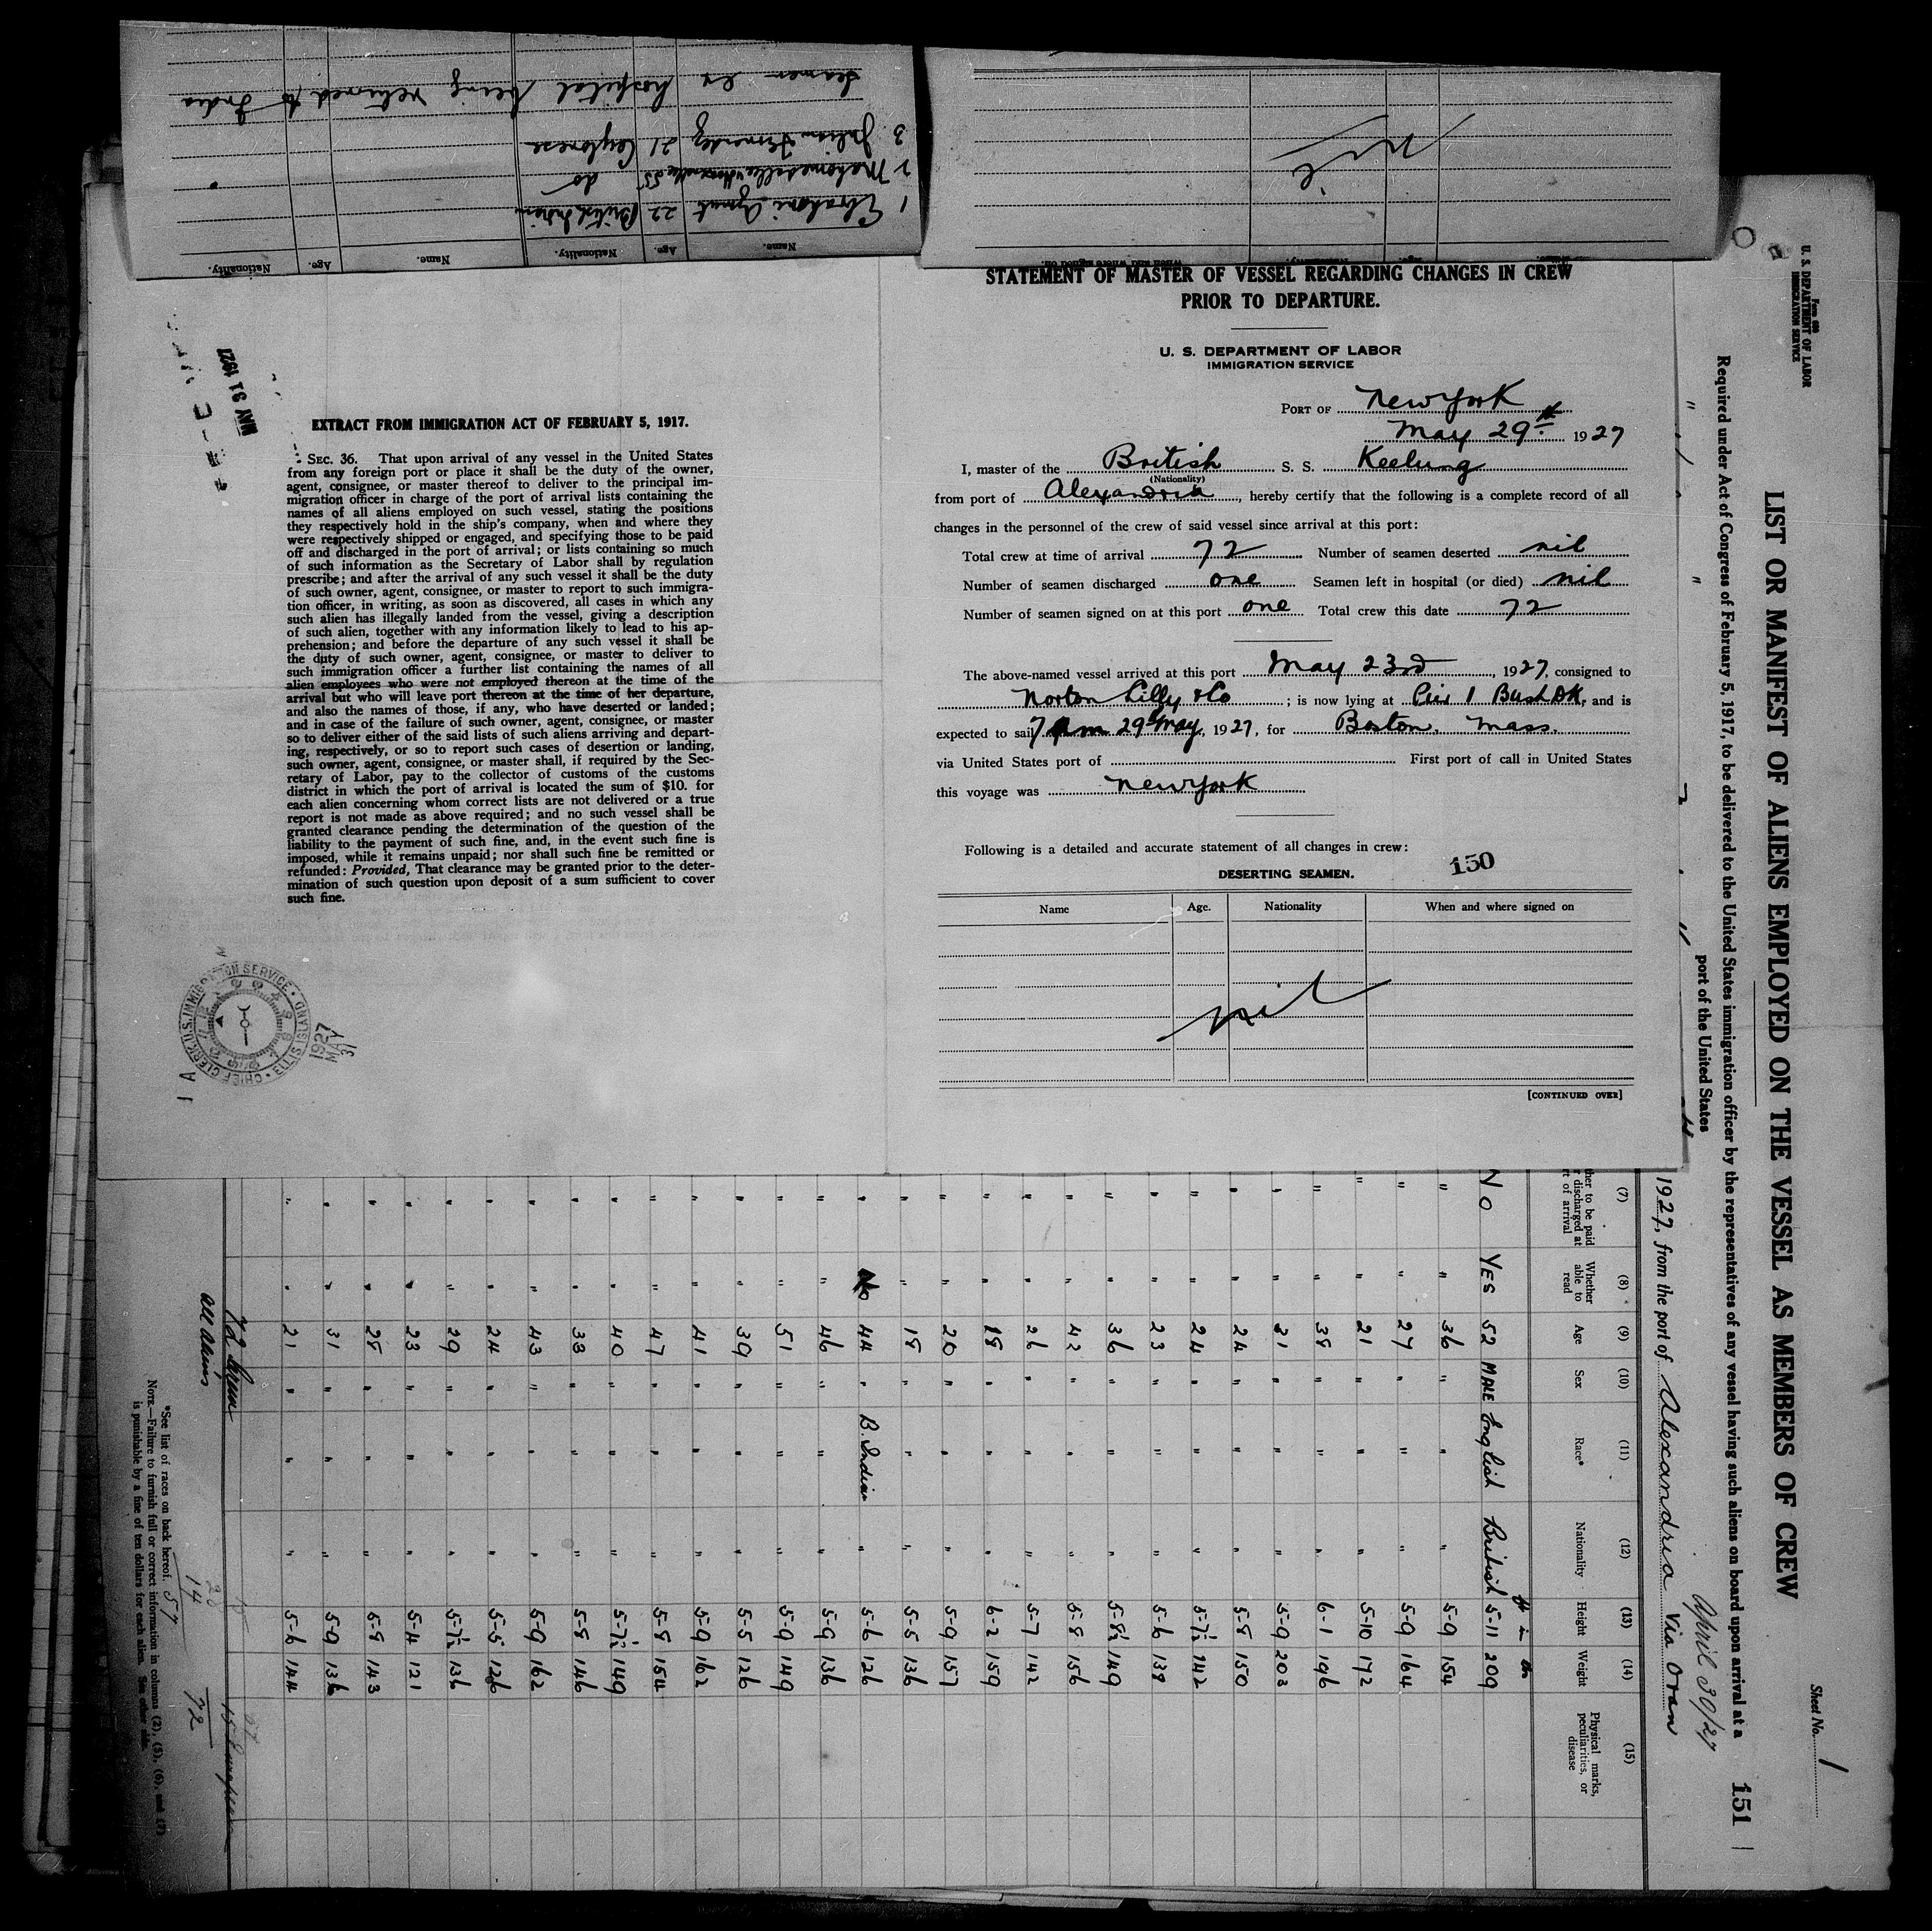 Seamen ex hospital being returned to India
3 Julian Fernandez 21 Ceylonese
2 55 do
1 22 British Indian
Name. Age. Nationality. Name. Age. Nationality.
nil
STATEMENT OF MASTER OF VESSEL REGARDING CHANGES IN CREW
PRIOR TO DEPARTURE.
U. S. DEPARTMENT OF LABOR
IMMIGRATION SERVICE
PORT OF New York
May 29th 1927
I, master of the British S. S. Keelung
(Nationality)
from port of Alexandria, hereby certify that the following is a complete record of all
changes in the personnel of the crew of said vessel since arrival at this port:
Total crew at time of arrival 72 Number of seamen deserted nil
Number of seamen discharged one Seamen left in hospital (or died) nil
Number of seamen signed on at this port one Total crew this date 72
The above-named vessel arrived at this port May 23rd, 1927, consigned to
Norton Lilly & Co; is now lying at Pier 1 Bush Dk, and is
expected to sail 7 am 29th May, 1927, for Boston. Mass.
via United States port of First port of call in United States
this voyage was New York
Following is a detailed and accurate statement of all changes in crew:
150
DESERTING SEAMEN.
Name Age. Nationality When and where signed on
nil
[CONTINUED OVER]
MAY 31 1927
EXTRACT FROM IMMIGRATION ACT OF FEBRUARY 5, 1917.
SEC. 36. That upon arrival of any vessel in the United States
from any foreign port or place it shall be the duty of the owner,
agent, consignee, or master thereof to deliver to the principal im-
migration officer in charge of the port of arrival lists containing the
names of all aliens employed on such vessel, stating the positions
they respectively hold in the ship's company, when and where they
were respectively shipped or engaged, and specifying those to be paid
off and discharged in the port of arrival; or lists containing so much
of such information as the Secretary of Labor shall by regulation
prescribe; and after the arrival of any such vessel it shall be the duty
of such owner, agent, consignee, or master to report to such immigra-
tion officer, in writing, as soon as discovered, all cases in which any
such alien has illegally landed from the vessel, giving a description
of such alien, together with any information likely to lead to his ap-
prehension; and before the departure of any such vessel it shall be
the duty of such owner, agent, consignee, or master to deliver to
such immigration officer a further list containing the names of all
alien employees who were not employed thereon at the time of the
arrival but who will leave port thereon at the time of her departure,
and also the names of those, if any, who have deserted or landed;
and in case of the failure of such owner, agent, consignee, or master
so to deliver either of the said lists of such aliens arriving and depart-
ing, respectively, or so to report such cases of desertion or landing,
such owner, agent, consignee, or master shall, if required by the Sec-
retary of Labor, pay to the collector of customs of the customs
district in which the port of arrival is located the sum of $10. for
each alien concerning whom correct lists are not delivered or a true
report is not made as above required; and no such vessel shall be
granted clearance pending the determination of the question of the
liability to the payment of such fine, and, in the event such fine is
imposed, while it remains unpaid; nor shall such fine be remitted or
refunded: Provided, That clearance may be granted prior to the deter-
mination of such question upon deposit of a sum sufficient to cover
such fine.
CHIEF CLERK U.S. IMMIGRATION SERVICE · ELLIS ISLAND
1927 MAY 31
Form 689
U. S. DEPARTMENT OF LABOR
IMMIGRATION SERVICE
Sheet No. 1
LIST OR MANIFEST OF ALIENS EMPLOYED ON THE VESSEL AS MEMBERS OF CREW
151
Required under Act of Congress of February 5, 1917, to be delivered to the United States immigration officer by the representatives of any vessel having such aliens on board upon arrival at a
port of the United States
April 30/27
1927, from the port of Alexandria via Oran
(7) (8) (9) (10) (11) (12) (13) (14) (15)
ther to be paid discharged at rt of arrival Whether able to read Age Sex Race* Nationality Height Weight Physical marks, peculiarities, or disease
No YES 52 MALE English British 5-11 209
" " 36 " " " 5-9 154
" " 27 " " " 5-9 164
" " 21 " " " 5-10 172
" " 38 " " " 6-1 196
" " 31 " " " 5-9 203
" " 24 " " " 5-8 150
" " 24 " " " 5-7½ 142
" " 23 " " " 5-6 138
" " 36 " " " 5-8½ 149
" " 42 " " " 5-8 156
" " 26 " " " 5-7 142
" " 18 " " " 6-2 159
" " 20 " " " 5-9 157
" " 18 " " " 5-5 136
" No 44 " B. Indian " 5-6 126
" " 46 " " " 5-9 136
" " 51 " " " 5-9 149
" " 39 " " " 5-5 126
" " 41 " " " 5-9 162
" " 47 " " " 5-8 154
" " 40 " " " 5-7½ 149
" " 33 " " " 5-8 146
" " 43 " " " 5-9 162
" " 24 " " " 5-5 126
" " 29 " " " 5-7½ 136
" " 23 " " " 5-4 121
" " 28 " " " 5-8 143
" " 31 " " " 5-9 136
" " 21 " " " 5-6 144
72 crew
all aliens
*See list of races on back hereof.
NOTE.—Failure to furnish full or correct information in columns (2), (5), (6), and (7)
is punishable by a fine of ten dollars for each alien. See other side.
57
14
72